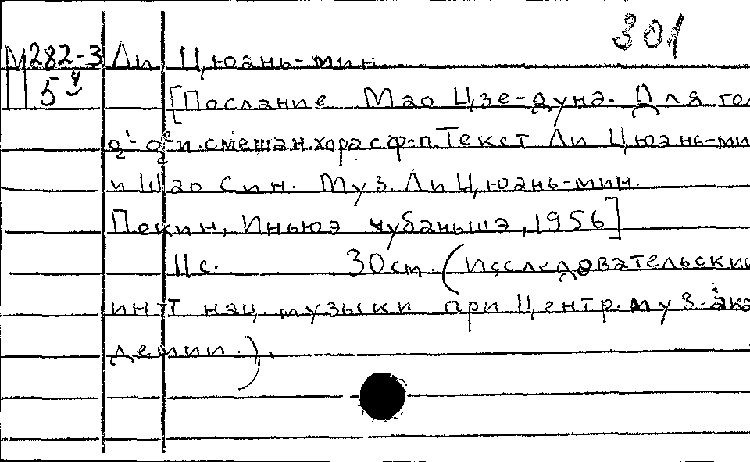 301
М282-3 Ли Цюань-мин
5ч [Послание Мао Цзе-дуна. Для гол
смешан. хора с ф-п. Текст Ли Цюань-ми
и Шао Син. Муз. Ли Цюань-мин.
Пекин, Иньюэ чубаньшэ, 1956]
11с. 30см (Исследовательски
инт нац. музыки при Центр. муз. ака
демии.).